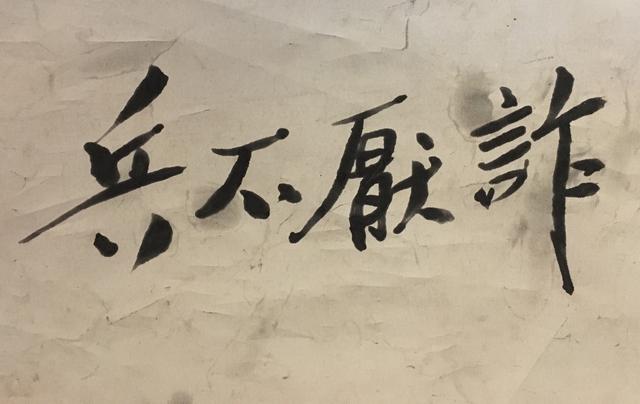 兵不厭詐